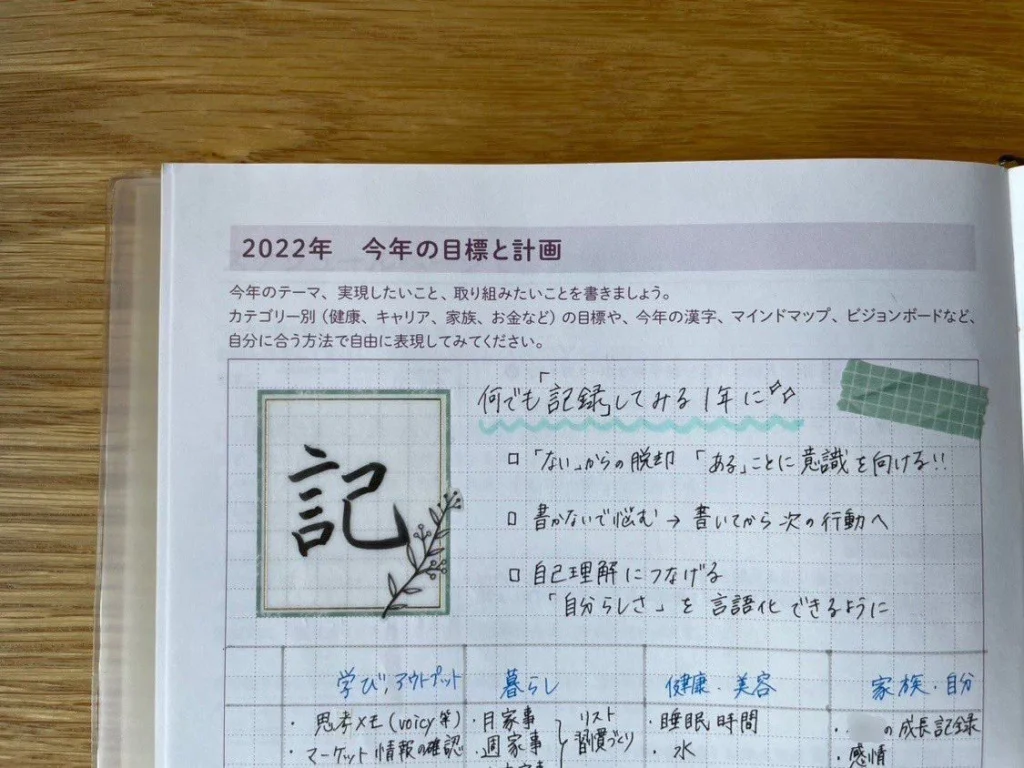 2022年　今年の目標と計画
今年のテーマ、実現したいこと、取り組みたいことを書きましょう。
カテゴリー別（健康、キャリア、家族、お金など）の目標や、今年の漢字、マインドマップ、ビジョンボードなど、
自分に合う方法で自由に表現してみてください。
記
何でも「記録」してみる1年に
□「ない」からの脱却 「ある」ことに意識を向ける!!
□ 書かないで悩む → 書いてから次の行動へ
□ 自己理解につなげる
「自分らしさ」を言語化できるように
学び,アウトプット
・思考メモ(voicy等)
・マーケット情報の確認
暮らし
・月家事
・週家事
リスト
習慣づくり
健康・美容
・睡眠時間
・水
家族・自分
・の成長記録
・感情